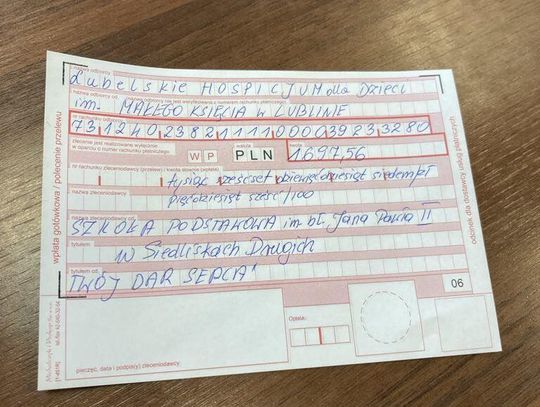 nazwa odbiorcy
Lubelskie HOSPICJUM dla Dzieci
nazwa odbiorcy cd.
im. MAŁEGO KSIĘCIA W LUBLINIE
nr rachunku odbiorcy
73 1240 2382 1111 0000 3923 3280
zlecenie jest realizowane wyłącznie
w oparciu o numer rachunku płatniczego
W P PLN
kwota
1697,56
nr rachunku zleceniodawcy (przelew) / kwota słownie (wpłata)
tysiąc sześćset dziewięćdziesiąt siedem zł
pięćdziesiąt sześć/100
nazwa zleceniodawcy
SZKOŁA PODSTAWOWA im. bł. Jana Pawła II
nazwa zleceniodawcy cd.
w Siedliskach Drugich
tytułem
"TWÓJ DAR SERCA"
tytułem cd.
06
Opłata:
pieczęć, data i podpis(y) zleceniodawcy
wpłata gotówkowa / polecenie przelewu
odcinek dla dostawcy usług płatniczych